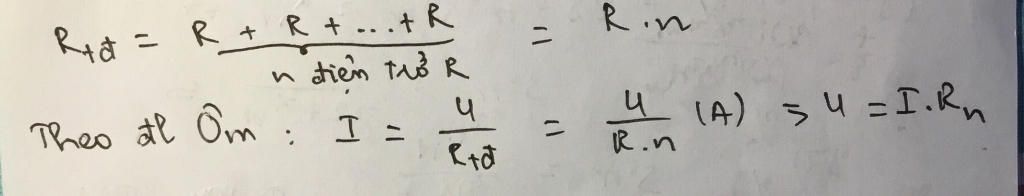 Rtđ = R + R + ... + R = R.n
n điện trở R
Theo đl Ôm : I = U/Rtđ = U/R.n (A) => U = I.Rn